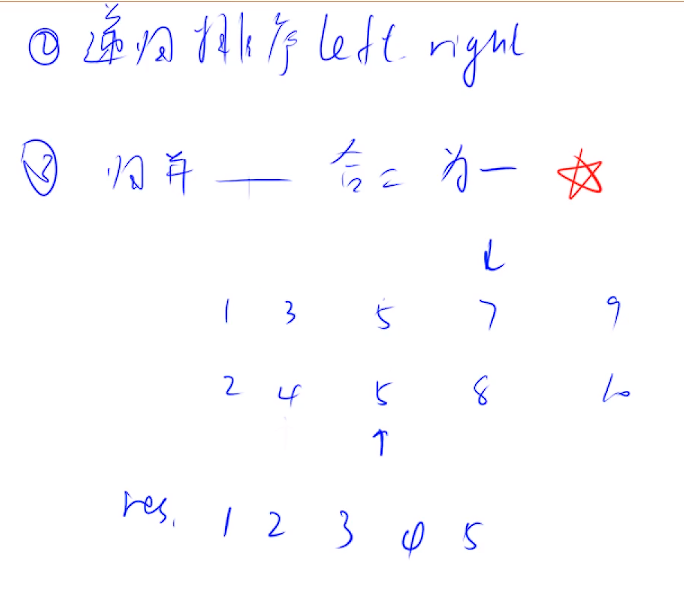 ② 递归排序 left right
③ 归并 — 合二为一 ☆
↓
1 3 5 7 9
2 4 5 8 10
↑
res. 1 2 3 4 5